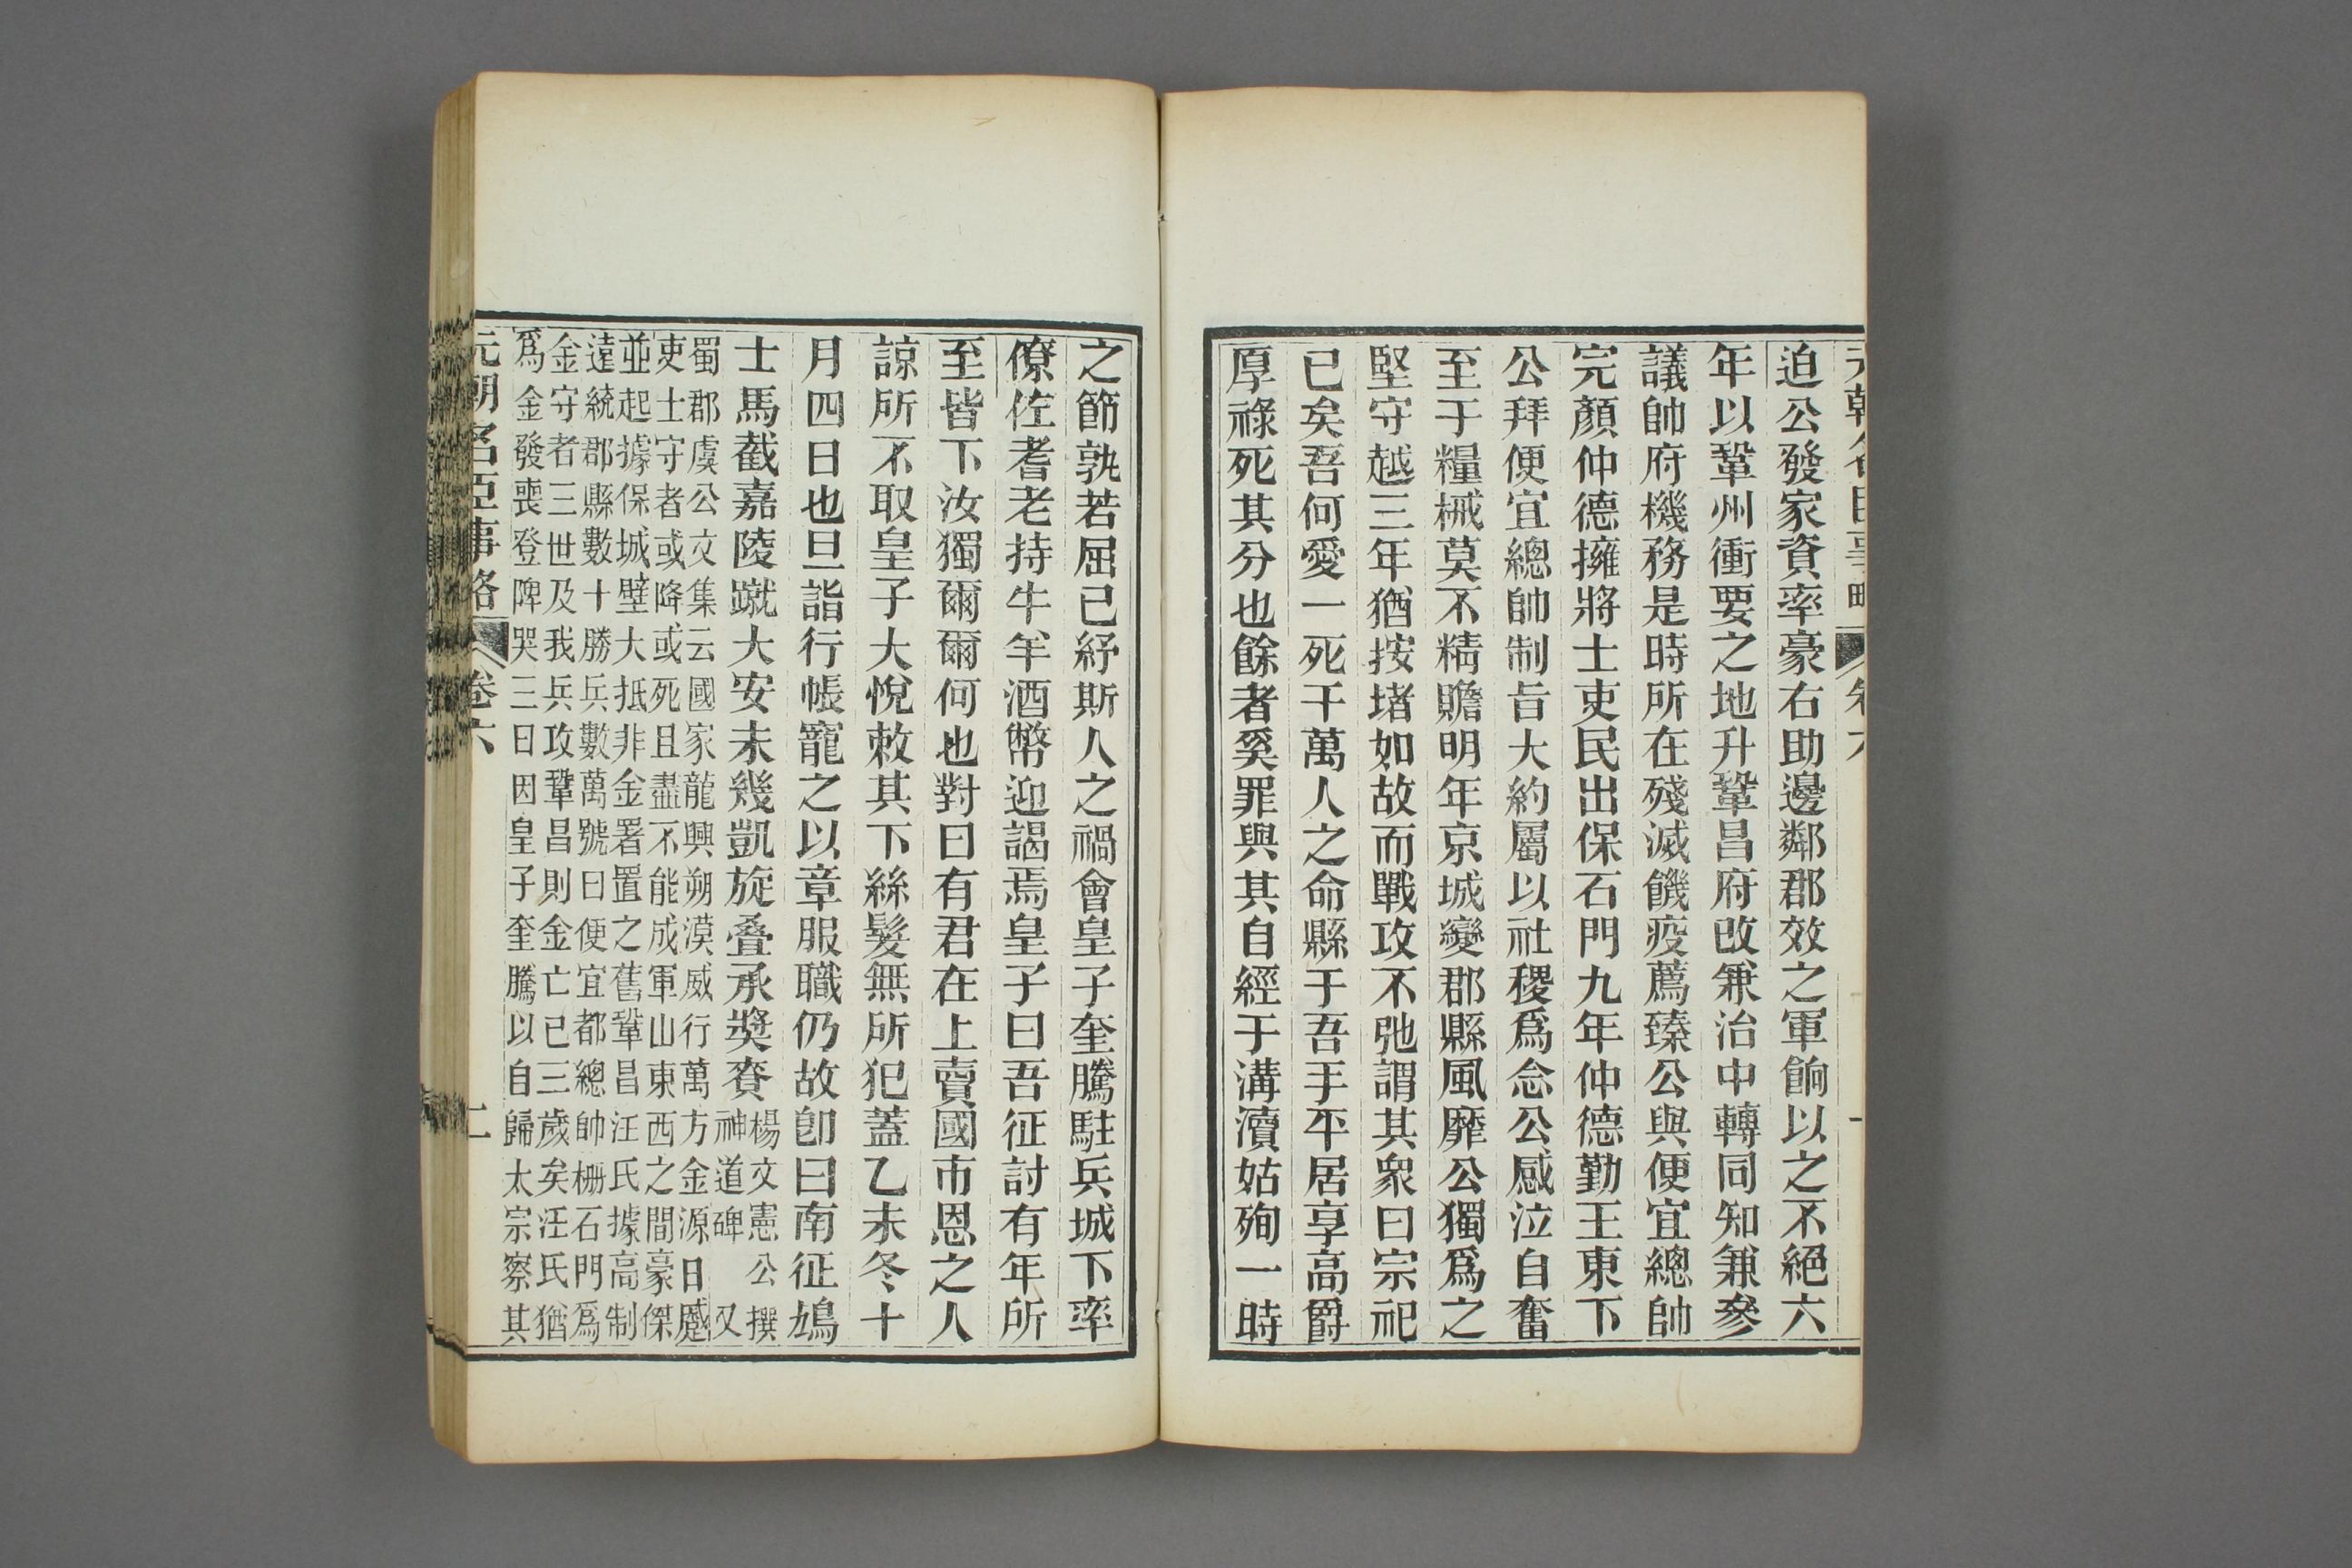 迫公發家資率豪右助邊鄰郡效之軍餉以之不絕六
年以鞏州衝要之地升鞏昌府改兼治中轉同知兼參
議帥府機務是時所在殘滅饑疫薦臻公與便宜總帥
完顏仲德擁將士吏民出保石門九年仲德勤王東下
公拜便宜總帥制旨大約屬以社稷爲念公感泣自奮
至于糧械莫不精贍明年京城變郡縣風靡公獨爲之
堅守越三年猶按堵如故而戰攻不弛謂其衆曰宗祀
已矣吾何愛一死千萬人之命縣于吾手平居享高爵
厚祿死其分也餘者奚罪與其自經于溝瀆姑殉一時
之節孰若屈己紓斯人之禍會皇子奎騰駐兵城下率
僚佐耆老持牛羊酒幣迎謁焉皇子曰吾征討有年所
至皆下汝獨爾爾何也對曰有君在上賣國市恩之人
諒所不取皇子大悅敕其下絲髮無所犯蓋乙未冬十
月四日也旦詣行帳寵之以章服職仍故卽曰南征鳩
士馬截嘉陵蹴大安未幾凱旋叠承獎賚
楊文憲公撰
神道碑 又
蜀郡虞公文集云國家龍興朔漠威行萬方金源日蹙
吏士守者或降或死且盡不能成軍山東西之間豪傑
並起據保城壁大抵非金署置之舊鞏昌汪氏據高制
遠統郡縣數十勝兵數萬號曰便宜都總帥柵石門爲
金守者三世及我兵攻鞏昌則金亡已三歲矣汪氏猶
爲金發喪登陴哭三日因皇子奎騰以自歸太宗察其
元朝名臣事略 卷六